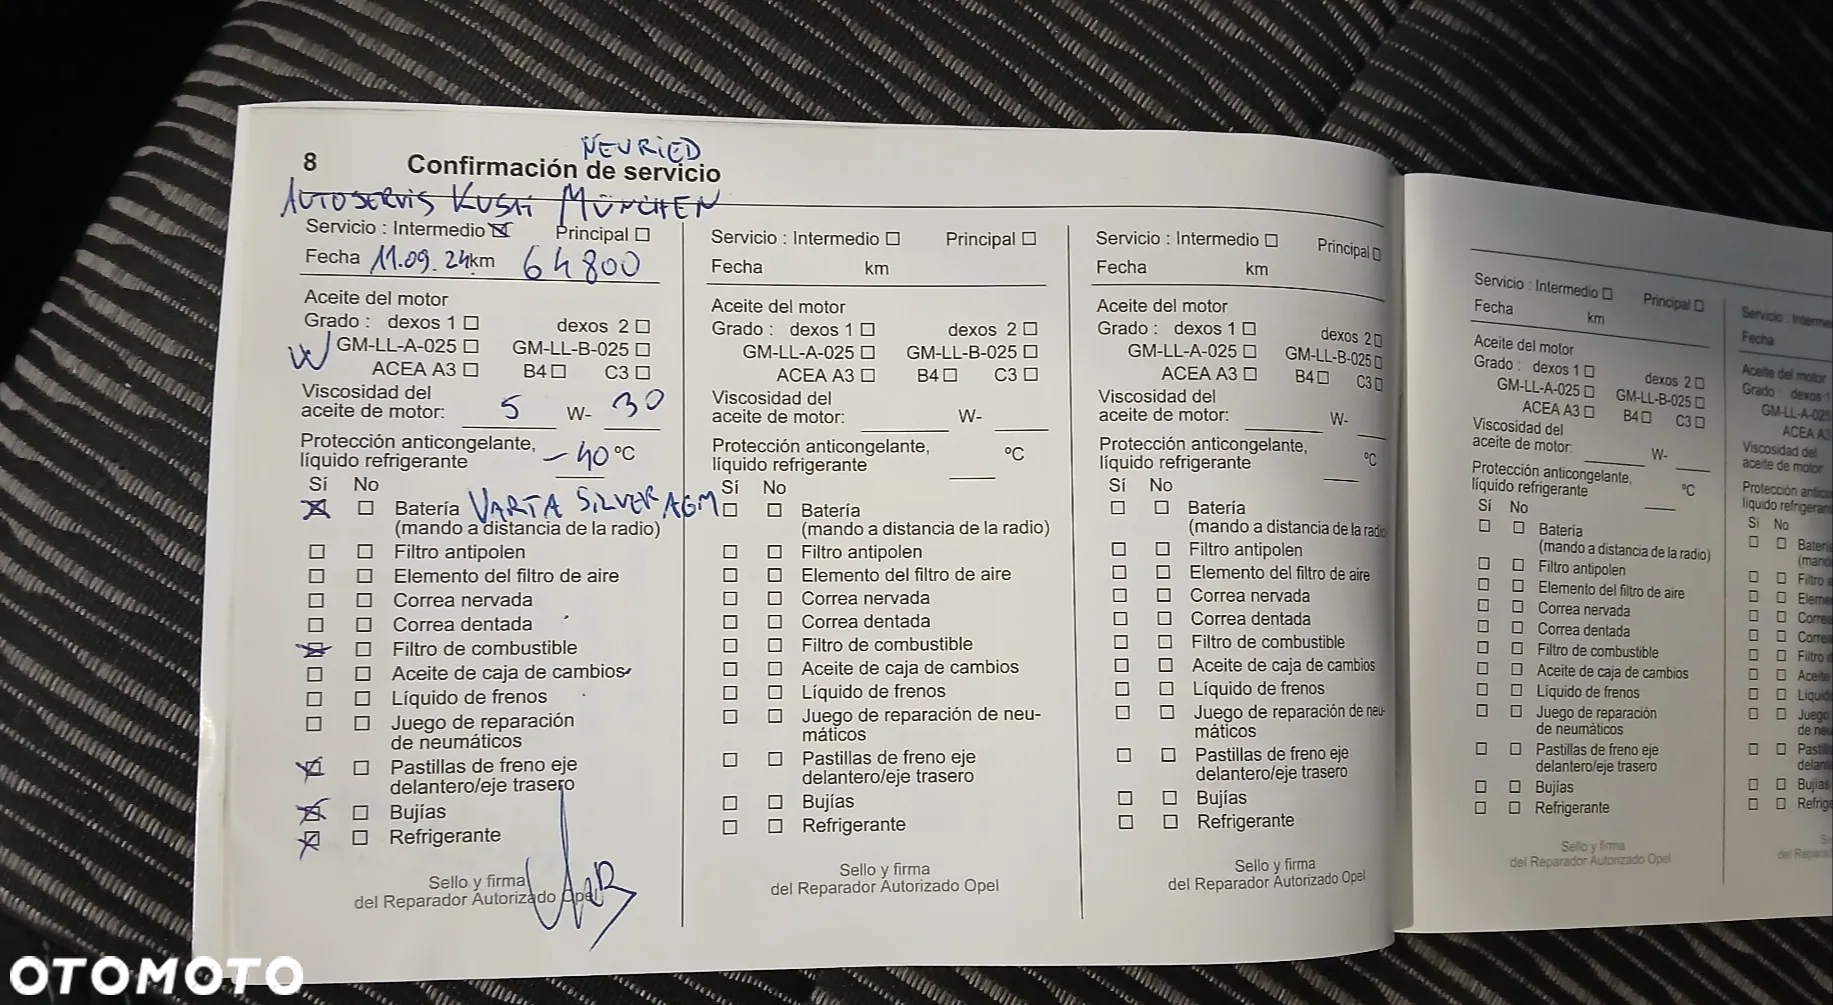 NEURIED
8 Confirmación de servicio
AUTOSERVIS KUSH MÜNCHEN
Servicio : Intermedio Principal
Fecha 11.09.24 km 64800
Aceite del motor
Grado : dexos 1 dexos 2
GM-LL-A-025 GM-LL-B-025
ACEA A3 B4 C3
Viscosidad del
aceite de motor: 5 W- 30
Protección anticongelante,
líquido refrigerante -40 °C
Sí No
Batería VARTA SILVER AGM
(mando a distancia de la radio)
Filtro antipolen
Elemento del filtro de aire
Correa nervada
Correa dentada
Filtro de combustible
Aceite de caja de cambios
Líquido de frenos
Juego de reparación
de neumáticos
Pastillas de freno eje
delantero/eje trasero
Bujías
Refrigerante
Sello y firma
del Reparador Autorizado Opel
Servicio : Intermedio Principal
Fecha km
Aceite del motor
Grado : dexos 1 dexos 2
GM-LL-A-025 GM-LL-B-025
ACEA A3 B4 C3
Viscosidad del
aceite de motor: W-
Protección anticongelante,
líquido refrigerante °C
Sí No
Batería
(mando a distancia de la radio)
Filtro antipolen
Elemento del filtro de aire
Correa nervada
Correa dentada
Filtro de combustible
Aceite de caja de cambios
Líquido de frenos
Juego de reparación de neu-
máticos
Pastillas de freno eje
delantero/eje trasero
Bujías
Refrigerante
Sello y firma
del Reparador Autorizado Opel
Servicio : Intermedio Principal
Fecha km
Aceite del motor
Grado : dexos 1 dexos 2
GM-LL-A-025 GM-LL-B-025
ACEA A3 B4 C3
Viscosidad del
aceite de motor: W-
Protección anticongelante,
líquido refrigerante °C
Sí No
Batería
(mando a distancia de la radio
Filtro antipolen
Elemento del filtro de aire
Correa nervada
Correa dentada
Filtro de combustible
Aceite de caja de cambios
Líquido de frenos
Juego de reparación de neu-
máticos
Pastillas de freno eje
delantero/eje trasero
Bujías
Refrigerante
Sello y firma
del Reparador Autorizado Opel
Servicio : Intermedio Principal
Fecha km
Aceite del motor
Grado : dexos 1 dexos 2
GM-LL-A-025 GM-LL-B-025
ACEA A3 B4 C3
Viscosidad del
aceite de motor: W-
Protección anticongelante,
líquido refrigerante °C
Sí No
Batería
(mando a distancia de la radio)
Filtro antipolen
Elemento del filtro de aire
Correa nervada
Correa dentada
Filtro de combustible
Aceite de caja de cambios
Líquido de frenos
Juego de reparación
de neumáticos
Pastillas de freno eje
delantero/eje trasero
Bujías
Refrigerante
Sello y firma
del Reparador Autorizado Opel
Servicio : Interme
Fecha
Aceite del motor
Grado : dexos 1
GM-LL-A-025
ACEA A3
Viscosidad del
aceite de motor:
Protección anticon
líquido refrigerante
Sí No
Bater
(mand
Filtro a
Eleme
Correa
Correa
Filtro d
Aceite
Líquid
Juego
de neu
Pastill
delan
Bujías
Refrige
OTOMOTO